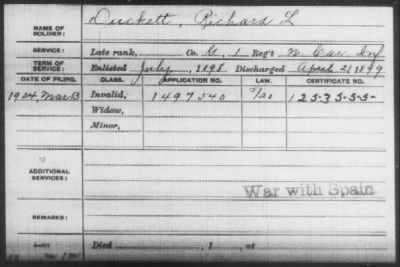 NAME OF SOLDIER: Duckett, Richard L
SERVICE: Late rank, Co. G, 1 Reg't N. Car Inf
TERM OF SERVICE: Enlisted July, 1898 Discharged April 21 1899
DATE OF FILING. CLASS. APPLICATION NO. LAW. CERTIFICATE NO.
1924, Mar 13 Invalid, 1497540
Widow,
Minor,
ADDITIONAL SERVICES:
War with Spain
REMARKS:
Died , 1 , at